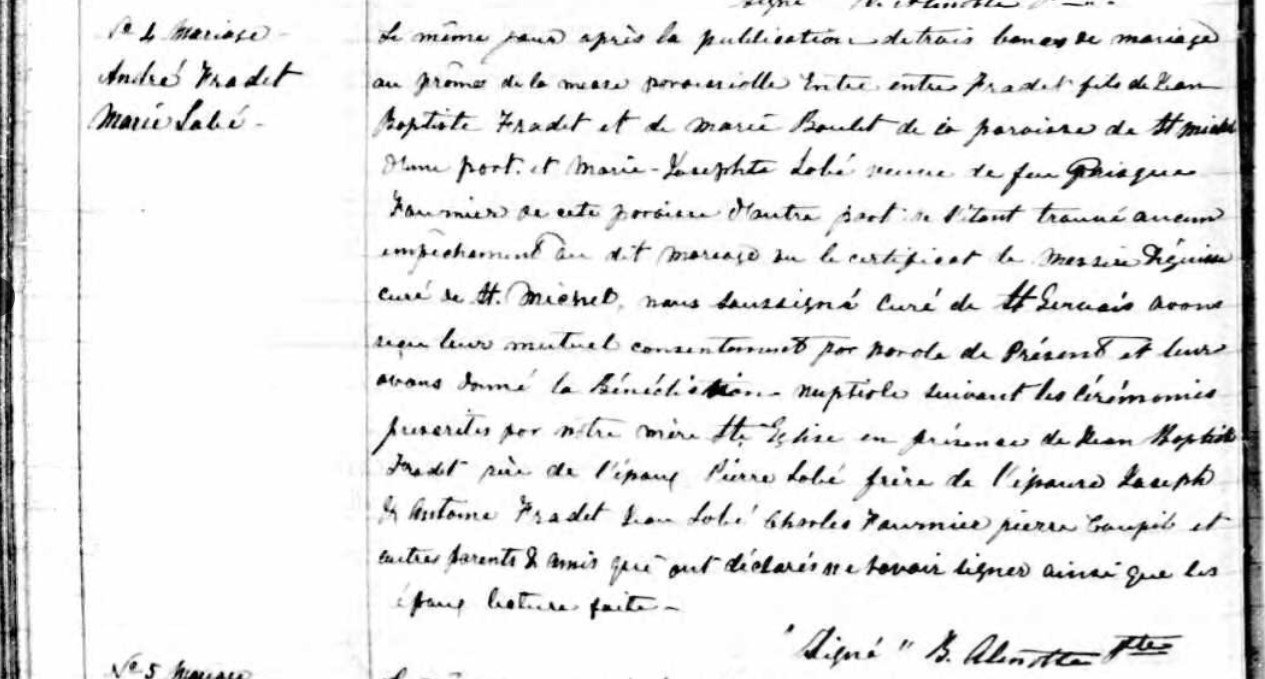 No 4 Mariage -
André Fradet
Marie Labé -
Le même jour après la publication de trois bancs de mariage
au prômes de la messe paroissiolle Entre entre Fradet fils de Jean
Baptiste Fradet et de Marie Boulet de la paroisse de St Michel
d'une part. et Marie-Josephte Labé veuve de feu
Fournier de cete paroisse d'autre part ne s'étant trouvé aucun
empêchement au dit mariage vu le certificat le messire
curé de St. Michel, nous Soussigné Curé de St Gervais avons
reçu leur mutuel consentement par parole de Présent et leur
avons donné la Bénédiction nuptiale suivant les Cérémonies
prescrites par notre mère Ste Eglise en présence de Jean Baptiste
Fradet père de l'époux Pierre Labé frère de l'épouse Joseph
& Antoine Fradet Jean Labé Charles Fournier pierre Goupil et
autres parents & amis qui ont déclarés ne savoir signer ainsi que les
époux lecture faite -
"Signé" B. Ptre
No 5 Mariage